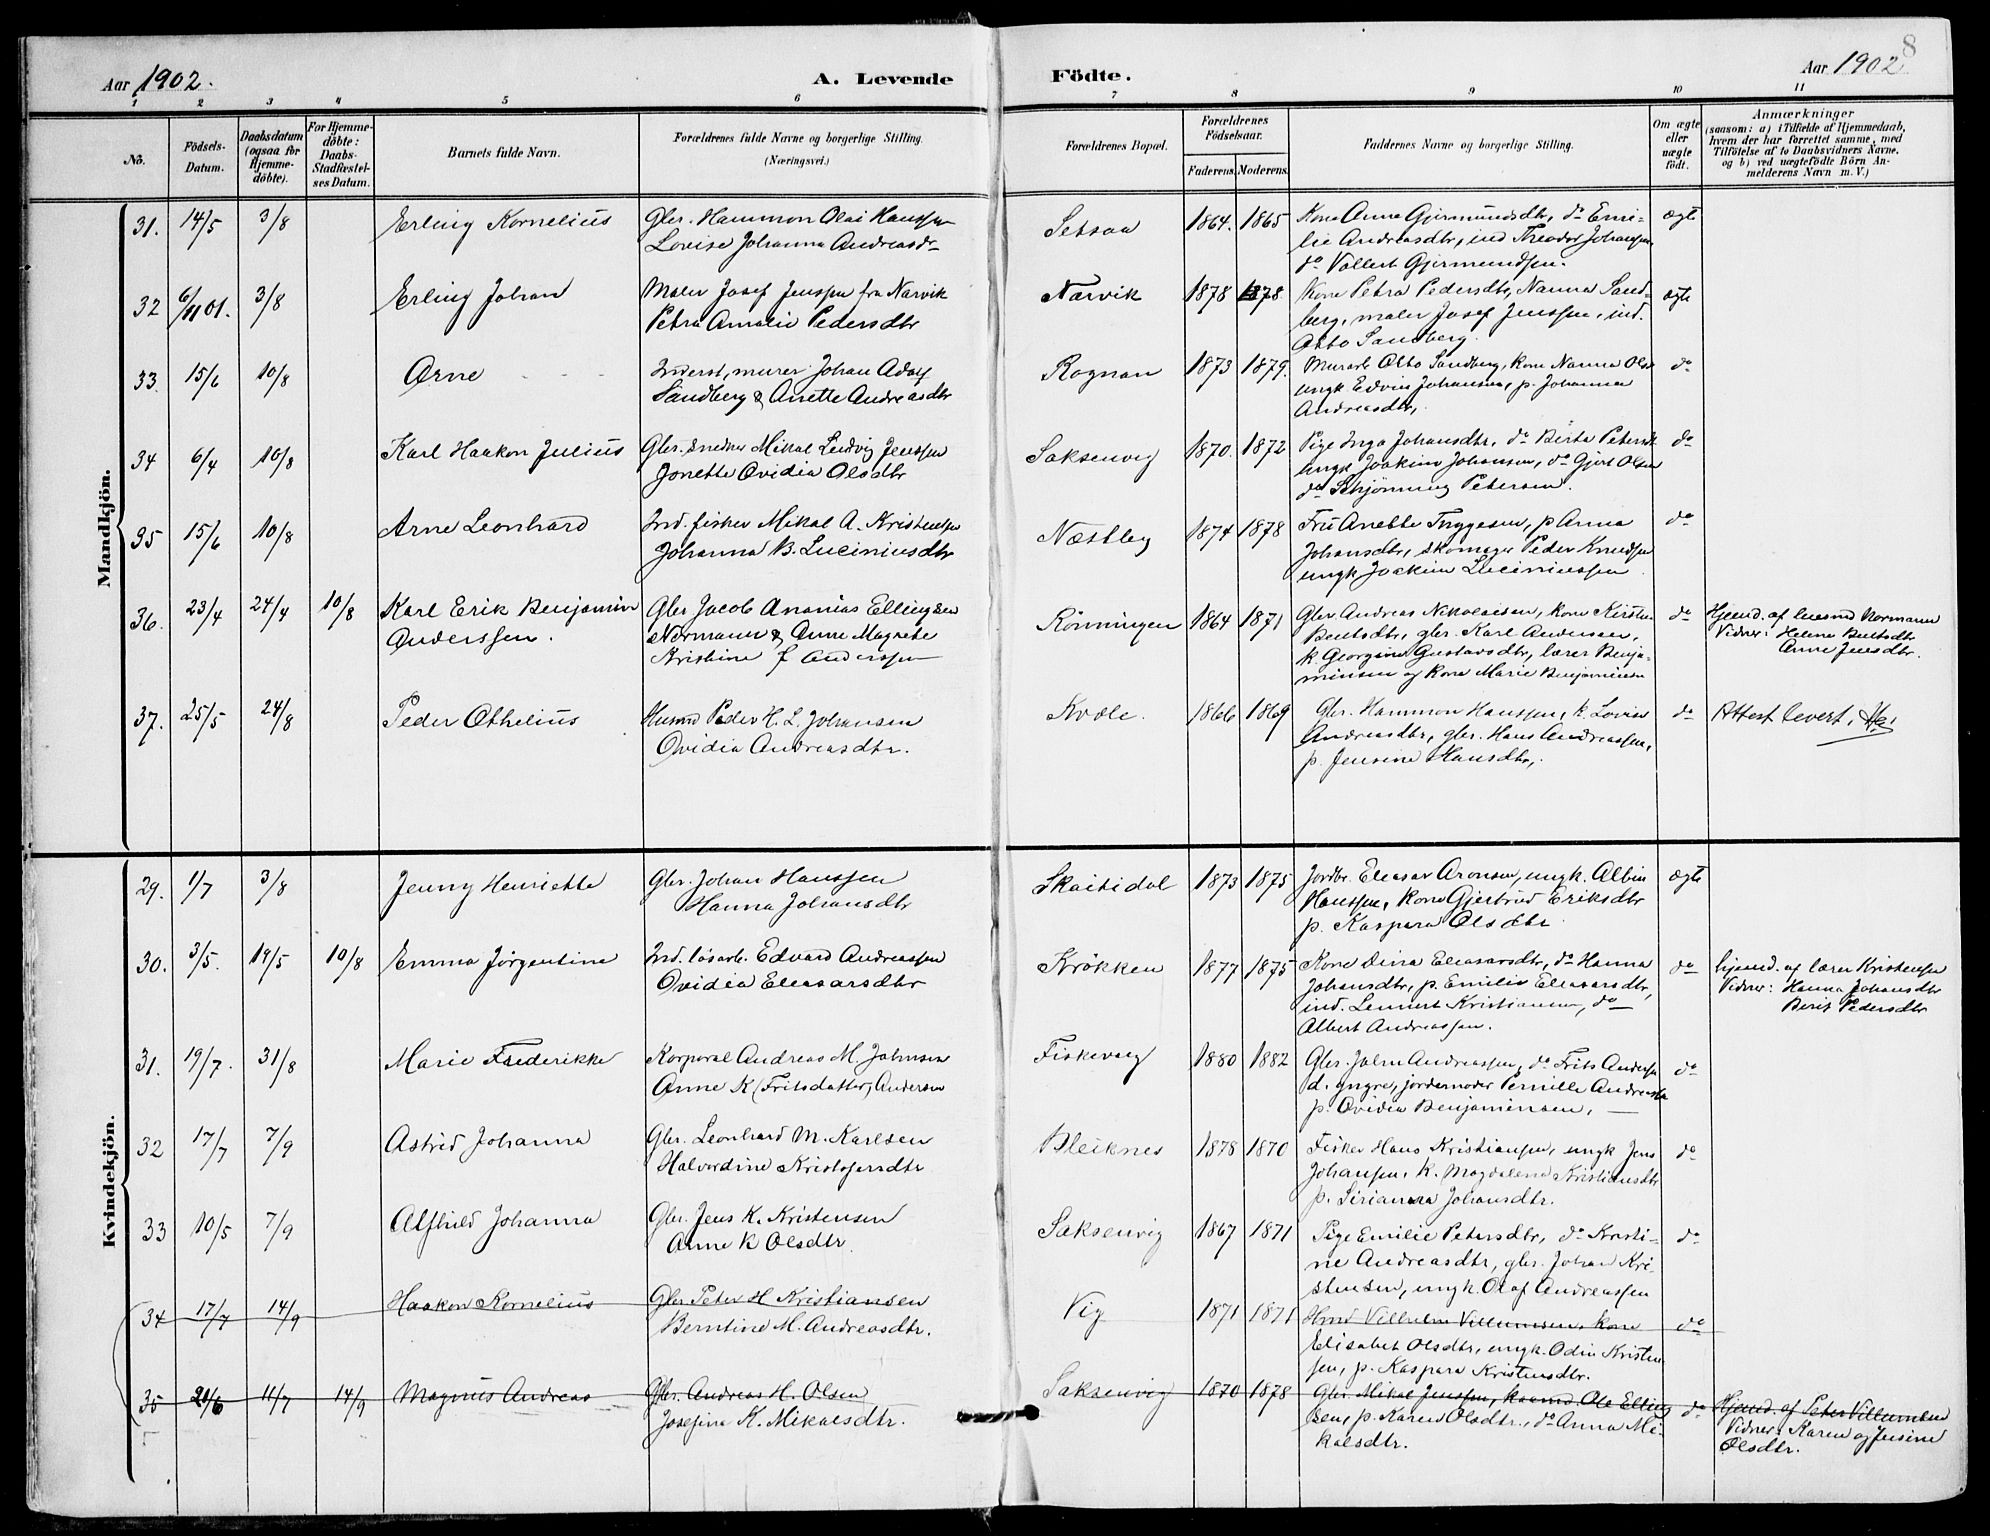 8
Aar 1902.
A. Levende
Födte.
Aar 1902
1 2 3 4 5 6 7 8 9 10 11
No.
Födsels-
Datum.
Daabsdatum
(ogsaa for
Hjemme-
döbte).
For Hjemme-
döbte:
Daabs-
Stadfæstel-
ses Datum.
Barnets fulde Navn.
Forældrenes fulde Navne og borgerlige Stilling.
(Næringsvei.)
Forældrenes Bopæl.
Forældrenes
Födselsaar.
Faderens. Moderens.
Faddernes Navne og borgerlige Stilling.
Om ægte
eller
uægte
födt.
Anmærkninger
(saasom: a) i Tilfælde af Hjemmedaab,
hvem der har forrettet samme, med
Tilföielse af to Daabsvidners Navne.
og b) ved uægtefödte Börn An-
melderens Navn m. V.)
Mandkjön.
31. 14/5 3/8 Erling Kornelius
Gbr. Hammon Olai Hanssen
Lovise Johanna Andreasdr
Setsaa 1864. 1865
Kone Anna Gjermundsdtr, do Emi-
lie Andreasdtr, ind Theodor Johansen
do Vollert Gjermundsen.
ægte
32 6/11 01. 3/8 Erling Johan
Maler Josef Jenssen fra Narvik
Petra Amalie Pedersdtr
Narvik 1878 1878
Kone Petra Pedersdtr, Nanna Sand-
berg, maler Josef Jenssen, ind.
Otto Sandberg.
ægte
33. 15/6 10/8 Arne
Inderst, murer Johan Adolf
Sandberg & Anette Andreasdtr
Rognan 1873 1879.
Murarb Otto Sandberg, kone Nanna Olsd
ungk Edvin Johansen, p. Johanna
Andreasdtr,
do
34 6/4 10/8 Karl Haakon Julius
Gbr. snedker Mikal Ludvig Jenssen
Jonette Ovidia Olsdtr
Saksenvig 1870. 1872
Pige Inga Johansdtr, do Birta Petersd
ungk Joakim Johansen, do Gjert Olsen
do Schjönning Petersen.
do
35 15/6 10/8 Arne Leonhard
Ind. fisker Mikal A. Kristensen
Johanna B. Luciniusdtr
Næstby 1874 1878
Fru Anette Tryggesen, p Anna
Johansdtr, skomager Peder Knudsen
ungk Joakim Luciniussen
do
36. 23/4 24/4 10/8 Karl Erik Benjamin
Anderssen.
Gbr Jacob Ananias Ellingsen
Normann & Anne Magrete
Kristine f Anderssen
Rönningen 1864 1871
Gbr Andreas Nikolaisen, kone Kirsten
Bentsdtr, gbr. Karl Andersen,
k. Georgine Gustavsdtr, lærer Benja-
minsen og kone Marie Benjaminsen
do
Hjemd. af Normann
Vidner: Helene Bentsdtr
Anne Jensdtr.
37. 25/5 24/8 Peder Othelius
Husmd Peder H. L. Johansen
Ovidia Andreasdtr.
Kvæle. 1866 1869
Gbr. Hammon Hanssen, k. Lovise
Andreasdtr, gbr. Hans Andreassen,
p. Jensine Hansdtr,
do
Attest levert,
Kvindekjön.
29. 1/7 3/8 Jenny Henriette
Gbr. Johan Hanssen
Hanna Johansdtr
Skaitidal 1873 1875
Jordbr. Eleasar Aronsen, ungk. Albin
Hanssen, kone Gjertrud Eriksdtr
p. Kaspara Olsdtr
ægte
30. 3/5. 19/5 10/8 Emma Jörgentine
Ind. lösarb. Edvard Andreassen
Ovidia Eleasarsdtr
Krökken 1877 1875
Kone Dina Eleasarsdtr, do Hanna
Johansdtr, p. Emilie Eleasarsdtr,
ind. Lennert Kristiansen, do
Albert Andreassen.
do
hjemd. af lærer Kristensen
Vidner: Hanna Johansdtr
Berit Pedersdtr
31. 19/7. 31/8 Marie Frederikke
Korporal Andreas M. Johnsen
Anne K (Fritsdatter) Andersen
Fiskevaag 1880 1882
Gbr. John Andreassen, do Frits Andersen
d. yngre, jordemoder Pernille Andreasd
p. Ovidia Benjaminsen,
do
32 17/7 7/9 Astrid Johanna
Gbr. Leonhard M. Karlsen
Halvordine Kristofersdtr
Bleiknes 1878 1870
Fisker Hans Kristiansen, ungk Jens
Johansen, k. Magdalena Kristiansdtr
p. Sirianna Johansdtr.
do
33 10/5 7/9 Alfhild Johanna
Gbr. Jens K. Kristensen
Anne K Olsdtr
Saksenvig 1867 1871
Pige Emilie Petersdtr, do Kristi-
ne Andreasdtr, gbr. Johan Kri-
stensen, ungk. Olaf Andreassen
do
34 17/7 14/9 Haakon Kornelius
Gbr Peter H Kristiansen
Berntine M. Andreasdtr.
Vig 1871 1871
Hmd Vilhelm Villumsen, kone
Elisabet Olsdtr, ungk. Odin Kristen-
sen, p. Kaspara Kristensdtr.
do
35 21/6 11/7 14/9 Magnus Andreas
Gbr. Andreas H. Olsen
Josefine K. Mikalsdtr.
Saksenvig 1870 1878
Gbr. Mikal Jenssen, kaarmd. Ole Elling
sen, p. Karen Olsdtr., do Anna Mi-
kalsdtr.
do
Hjemd. af Peter Villumsen
Vidner: Karen og Jensine
Olsdtr.